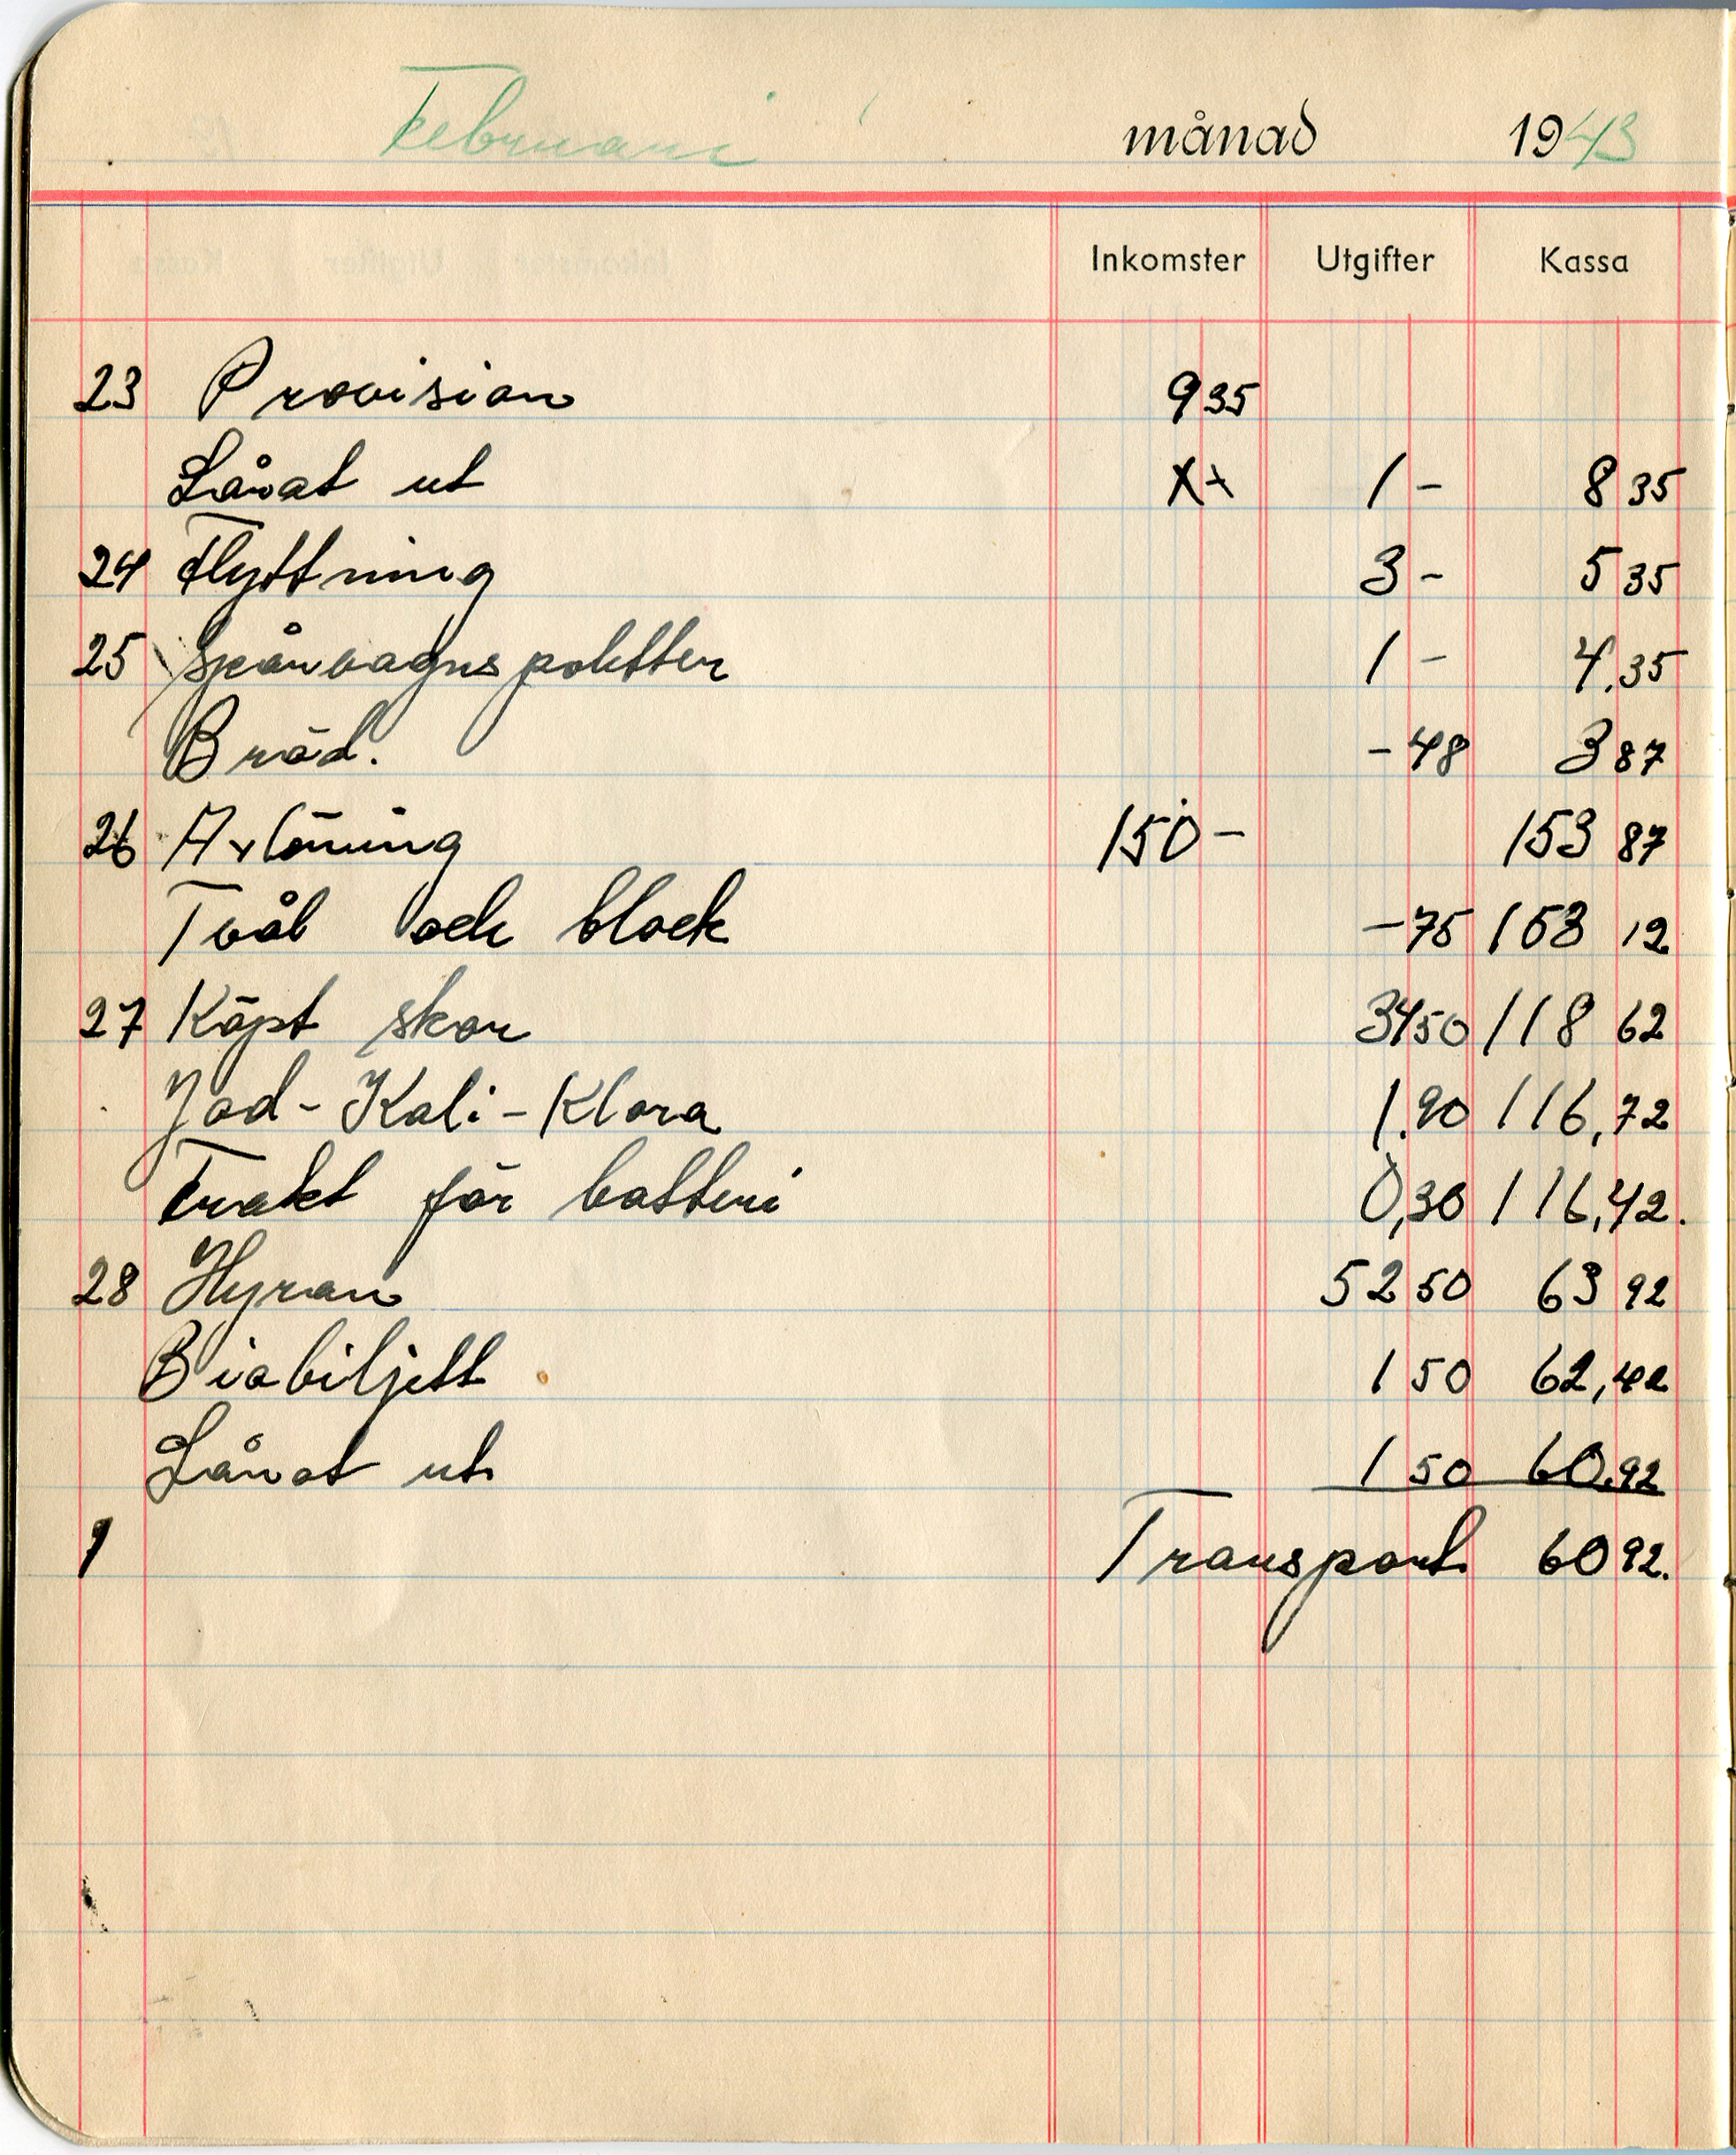 Februari månad 1943
Inkomster Utgifter Kassa
23 Provision 935
Lånat ut 1 - 8 35
24 Flyttning 3 - 5 35
25 Spårvagnspoletter 1 - 4,35
Bröd. - 48 3 87
26 Avlöning 150 - 153 87
Tvål och block - 75 153 12
27 Köpt skor 34 50 118 62
Jod - Kali - Klora 1.90 116,72
Frakt för batteri 0,30 116,42.
28 Hyran 52 50 63 92
Biobiljett 1 50 62,42
Lånat ut 1 50 60,92
1 Transport 60 92.